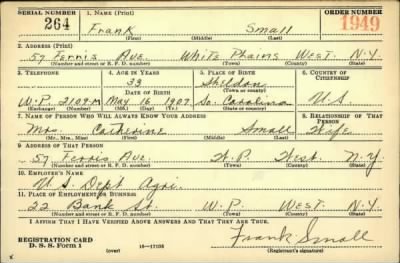 SERIAL NUMBER 1. NAME (Print) ORDER NUMBER
264 Frank Small 1949
(First) (Middle) (Last)
2. ADDRESS (Print)
57 Ferris Ave. White Plains West. N.Y.
(Number and street or R. F. D. number) (Town) (County) (State)
3. TELEPHONE 4. AGE IN YEARS 5. PLACE OF BIRTH 6. COUNTRY OF CITIZENSHIP
33 Sheldon
DATE OF BIRTH (Town or county)
W.P. 2109-M May 16 1907 So. Carolina U S
(Exchange) (Number) (Mo.) (Day) (Yr.) (State or country)
7. NAME OF PERSON WHO WILL ALWAYS KNOW YOUR ADDRESS 8. RELATIONSHIP OF THAT PERSON
Mrs. Catherine Small Wife
(Mr., Mrs., Miss) (First) (Middle) (Last)
9. ADDRESS OF THAT PERSON
57 Ferris Ave. W.P. West. N.Y.
(Number and street or R. F. D. number) (Town) (County) (State)
10. EMPLOYER'S NAME
U.S. Dept Agri.
11. PLACE OF EMPLOYMENT OR BUSINESS
22 Bank St. W.P. WEST. N.Y.
(Number and street or R. F. D. number) (Town) (County) (State)
I AFFIRM THAT I HAVE VERIFIED ABOVE ANSWERS AND THAT THEY ARE TRUE.
REGISTRATION CARD Frank Small
D. S. S. Form 1 (over) 16—17105 (Registrant's signature)